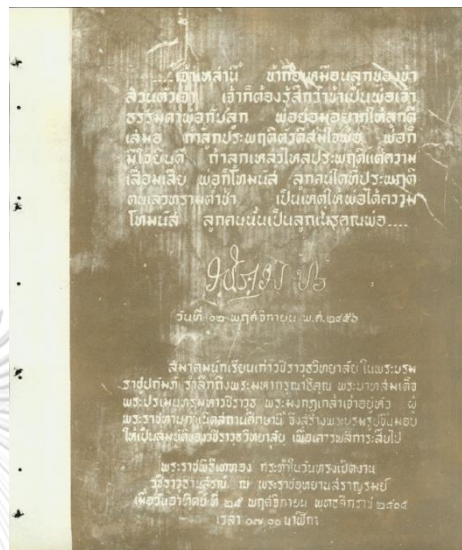 ....เจ้าเหล่านี้ ข้าถือเหมือนลูกของข้า
ส่วนตัวเจ้า เจ้าก็ต้องรู้สึกว่าข้าเป็นพ่อเจ้า
ธรรมดาพ่อกับลูก พ่อย่อมอยากให้ลูกดี
เสมอ ถ้าลูกประพฤติตัวดีสมใจพ่อ พ่อก็
มีใจยินดี ถ้าลูกเหลวไหลประพฤติแต่ความ
เสื่อมเสีย พ่อก็โทมนัส ลูกคนใดที่ประพฤติ
ตนเลวทรามต่ำช้า เป็นเหตุให้พ่อได้ความ
โทมนัส ลูกคนนั้นเป็นลูกเนรคุณพ่อ....
วันที่ ๑๒ พฤศจิกายน พ.ศ. ๒๔๕๖
สมาคมนักเรียนเก่าวชิราวุธวิทยาลัย ในพระบรม
ราชูปถัมภ์ รำลึกถึงพระมหากรุณาธิคุณ พระบาทสมเด็จ
พระปรเมนทรมหาวชิราวุธ พระมงกุฎเกล้าเจ้าอยู่หัว ผู้
พระราชทานกำเนิดสถานศึกษานี้ จึงสร้างพระบรมรูปขึ้นมอบ
ให้เป็นสมบัติของวชิราวุธวิทยาลัย เพื่อเคารพสักการะสืบไป
พระราชพิธีเททอง กระทำในวันทรงเปิดงาน
วชิราวุธานุสรณ์ ณ พระราชอุทยานสราญรมย์
เมื่อวันอาทิตย์ ที่ ๒๕ พฤศจิกายน พุทธศักราช ๒๕๐๕
เวลา ๑๗.๐๐ นาฬิกา